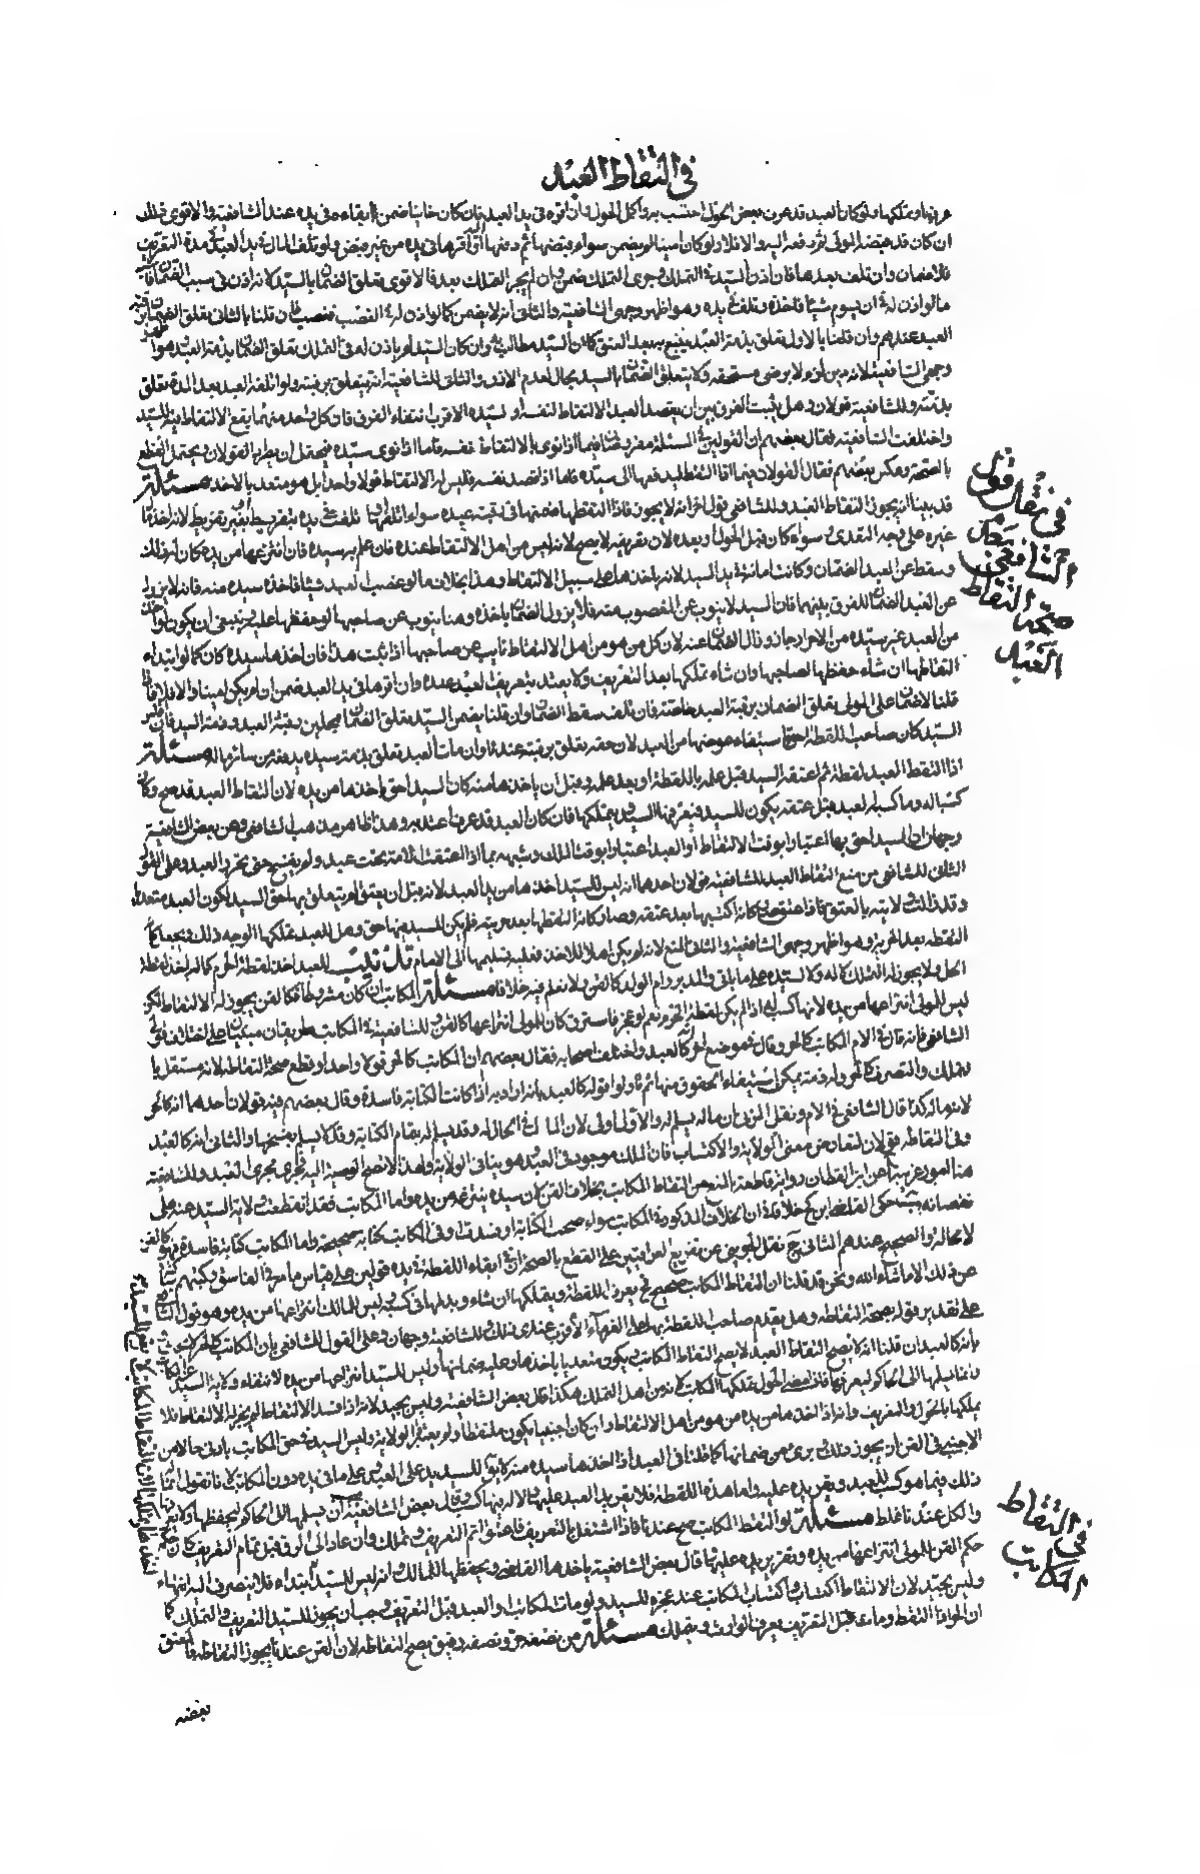 في التقاط العبد
عرفها وتملكها ولو كان العبد قد عرف بعض الحول احتسب به وأكمل الحول وان اقره في يد العبد فان كان خائنا ضمن بابقائه في يده عند الشافعية والاقوى ذلك
ان كان قد قبضه المولى ثم دفعه اليه والا فلا ولو كان امينا لم يضمن سواء قبضها ثم دفعها اليه أو أقرها في يده من غير قبض ولو تلف المال في يد العبد في مدة التعريف
فلا ضمان وان تلف بعدها فان اذن السيد في التملك وجرى التملك ضمن وان لم يجر التملك بعد فالاقوى تعلق الضمان بالسيد لانه اذن في سبب الضمان
ما لو اذن له في ان يسوم شيئا فأخذه وتلف في يده وهو اظهر وجهي الشافعية والثاني انه لا يضمن كما لو اذن له في الغصب فغصب فان قلنا بالثاني تعلق الضمان
العبد عندهم وان قلنا بالاول تعلق بذمة العبد يتبع به بعد العتق كما ان السيد مطالب به وان كان السيد لم يأذن له في التملك تعلق الضمان بذمة العبد
وجهي الشافعية لانه دين لزمه لا برضى مستحقه ولا يتعلق الضمان بالسيد بحال لعدم الاذن والثاني للشافعية انه يتعلق برقبته ولو اتلفه العبد بعد المدة تعلق
بذمته وللشافعية قولان وهل يثبت الفرق بين ان يقصد العبد الالتقاط لنفسه او لسيده الاقرب انتفاء الفرق فان كل واحد منهما يقع الالتقاط فيه للسيد
واختلفت الشافعية فقال بعضهم ان القولين في المسئلة مفروضان فيما اذا نوى بالالتقاط نفسه فاما اذا نوى سيده فيحتمل ان يطرد القولان ويحتمل القطع
بالصحة وعكس بعضهم فقال القولان فيما اذا التقط ليدفعها الى سيده فاما اذا قصد نفسه فليس له الالتقاط قولا واحدا بل هو متعد بالاخذ مسئلة
قد بينا انه يجوز التقاط العبد وللشافعي قول اخر انه لا يجوز فاذا التقطها ضمنها في رقبة عبده سواء اتلفها او تلفت في يده بتفريط او بغير تفريط لانه اخذ مال
غيره على وجه التعدي وسواء كان قبل الحول او بعده لان تعريفه لا يصح لانه ليس من اهل الالتقاط عنده فان علم به سيده فان انتزعها من يده كان له ذلك
وسقط عن العبد الضمان وكانت امانة في يد السيد لانه يأخذها على سبيل الالتقاط وهذا بخلاف ما لو غصب العبد شيئا فأخذه سيده منه فانه لا يزول
عن العبد الضمان للفرق بينهما فان السيد لا ينوب عن المغصوب منه فلا يزول الضمان بأخذه وهنا ينوب عن صاحبها لو حفظها عليه وينبغي ان يكون لو اخذها
من العبد غير سيده من الاحرار جاز وزال الضمان عنه لان كل من هو من اهل الالتقاط نايب عن صاحبها اذا ثبت هذا فان اخذها سيده كان كما لو ابتداء
التقاطها ان شاء حفظها لصاحبها وان شاء تملكها بعد التعريف ولا يعتد بتعريف العبد عنده وان اقرها في يد العبد ضمن ان لم يكن امينا والا فلا
قلنا لا ضمان على المولى تعلق الضمان برقبة العبد خاصة فان تلف سقط الضمان وان قلنا يضمن السيد تعلق الضمان بمحلين رقبة العبد وذمة السيد فان افلس
السيد كان صاحب اللقطة احق باستيفاء عوضها من العبد لان حقه يتعلق برقبته عندنا وان مات العبد تعلق بذمة سيده يدفعه من سائر ماله مسئلة
اذا التقط العبد لقطة ثم اعتقه السيد قبل علمه باللقطة او بعد علمه وقبل ان ياخذها منه كان السيد احق باخذها من يده لان التقاط العبد قد صح وكان
كسبا له وما كسبه العبد قبل عتقه يكون للسيد فيعرفها السيد ويتملكها فان كان العبد قد عرف اعتد به وهذا ظاهر مذهب الشافعي وعن بعض الشافعية
وجهان في ان السيد احق بها اعتبارا بوقت الالتقاط أو العبد اعتبارا بوقت الملك وشبهه بما اذا اعتقت الامة تحت عبد ولم يفسخ حتى تحرر العبد وعلى القول
الثاني للشافعي من منع التقاط العبد للشافعية قولان احدهما انه ليس للسيد اخذها من يد العبد لانه قبل ان يعتق لم يتعلق بها حق السيد لكون العبد متعديا
وقد زالت ولايته بالعتق فاذا عتق صار كانه اكتسبها بعد عتقه وصار كانه التقطها بعد حريته فلم يكن للسيد فيها حق وهل للعبد تملكها الوجه ذلك ويجعل كانه
التقطه بعد الحرية وهو اظهر وجهي الشافعية والثاني المنع لانه لم يكن اهلا للاخذ فعليه تسليمها الى الامام تذنيب للعبد اخذ لقطة الحرم كما له اخذ لقطة
الحل ولا يجوز له التملك له ولا لسيده على ما ياتي والمدبر وام الولد كالقن ولا نعلم فيه خلافا مسئلة المكاتب ان كان مشروطا فكالقن يجوز له الالتقاط لكن
ليس للمولى انتزاعها من يده لانها كسب له اذا لم يكن لقطة الحرم نعم لو عجز فاسترق كان للمولى انتزاعها كالقن وللشافعية في المكاتب طريقان مبنيان على اختلاف قولي
الشافعي فانه قال في الام المكاتب كالحر وقال في موضع اخر انه كالعبد واختلف اصحابه فقال بعضهم ان المكاتب كالحر قولا واحدا وقطع بصحة التقاطه لانه مستقل با
لتملك والتصرف كالحر وله ذمة يمكن استيفاء الحقوق منها ثم تأولوا قوله كالعبد بانه اراد به اذا كانت الكتابة فاسدة وقال بعضهم فيه قولان احدهما انه كالحر
لان ماله كذا قال الشافعي في الام ونقل المزني ان ماله يسلم له والاول اولى لان المال في الحال له وقد يسلم له بتمام الكتابة وقد لا يسلم بفسخها والثاني انه كالعبد
وفي التقاطه قولان لتعارض معنى الولاية والاكتساب فان الملك موجود في العبد وهو ينافي الولاية ولهذا لا تصح الوصية اليه فجرى مجرى العبد وللشافعية
هنا امور غريبة أ عن ابن القطان رواية قاطعة بالمنع من التقاط المكاتب بخلاف القن لان سيده ينتزعه من يده واما المكاتب فقد انقطعت ولاية السيد عنه على
نقصانه ب حكى القاضي ابن كج خلافا في ان الخلاف المذكور في المكاتب سواء صحت الكتابة او فسدت او في المكاتب كتابة صحيحة واما المكاتب كتابة فاسدة فهو كالقن
لا محالة والصحيح عندهم الثاني ج نقل الجويني عن تفريع العراقيين على القطع بالصحة ان في ابقاء اللقطة في يده قولين على قياس ما مر في الفاسق وكتبهم ساكتة
عن ذلك الا ما شاء الله ونحن قد قلنا ان التقاط المكاتب صحيح فيعرف اللقطة ويتملكها ان شاء وبدلها في كسبه وليس للمالك انتزاعها من يده وهو قول الشافعي
على تقدير قوله بصحة التقاطه وهل يقدم صاحب اللقطة بها على الغرماء الاقرب عندي ذلك وللشافعية وجهان وعلى القول للشافعي بان المكاتب كالحر
بانه كالعبد ان قلنا انه لا يصح التقاط العبد لا يصح التقاط المكاتب ويكون متعديا بأخذها وعليه ضمانها وليس للسيد انتزاعها من يده لانتفاء ولاية السيد
وانما يسلمها الى الحاكم ليعرفها فاذا مضى الحول تملكها المكاتب لانه من اهل التملك هكذا قال بعض الشافعية وليس بجيد لانه اذا فسد الالتقاط لم يجز له الالتقاط فلا
يملكها بالحول والتعريف وانه اذا اخذها من يده من هو من اهل الالتقاط وان كان اجنبيا يكون ملتقطا ولم يعتبر الولاية وليس السيد في حق المكاتب بادنى حالا من
الاجنبي في القن ان يجوز ذلك وبرئ من ضمانها كما قلنا في العبد اذا اخذها سيده منه كابق للسيد يد على العبد وليس على ما في يده دون المكاتب لانا نقول انما
ذلك فيما هو كسب للعبد ويقر يده عليه واما هذه اللقطة فلا يقر يد العبد عليها ولا له فيها كسب وقال بعض الشافعية ان يسلمها الى الحاكم ليحفظها ولا يبرأ
والكل عندنا غلط مسئلة لو التقط المكاتب صح عندنا فاذا اشتغل بالتعريف فاعتق اتم التعريف وتملك وان عاد الى الرق قبل تمام التعريف كان
حكم القن للمولى انتزاعها من يده وتقرير يده عليها وقال بعض الشافعية يأخذها القاضي ويحفظها للمالك وانه ليس للسيد ابتداء فلا ينصرف اليه انتهاء
وليس بجيد لان الالتقاط اكتساب واكتساب المكاتب عند عجزه للسيد ولو مات المكاتب او العبد قبل التعريف وجب ان يجوز للسيد التعريف والتملك كما
ان الحر اذا التقط ومات قبل التعريف يعرف الوارث ويتملك مسئلة من نصفه حر ونصفه رقيق يصح التقاطه لان القن عندنا يجوز التقاطه فالمعتق
بعضه
في نقل قول
الشافعي في
صحة التقاط
العبد
في التقاط
المكاتب